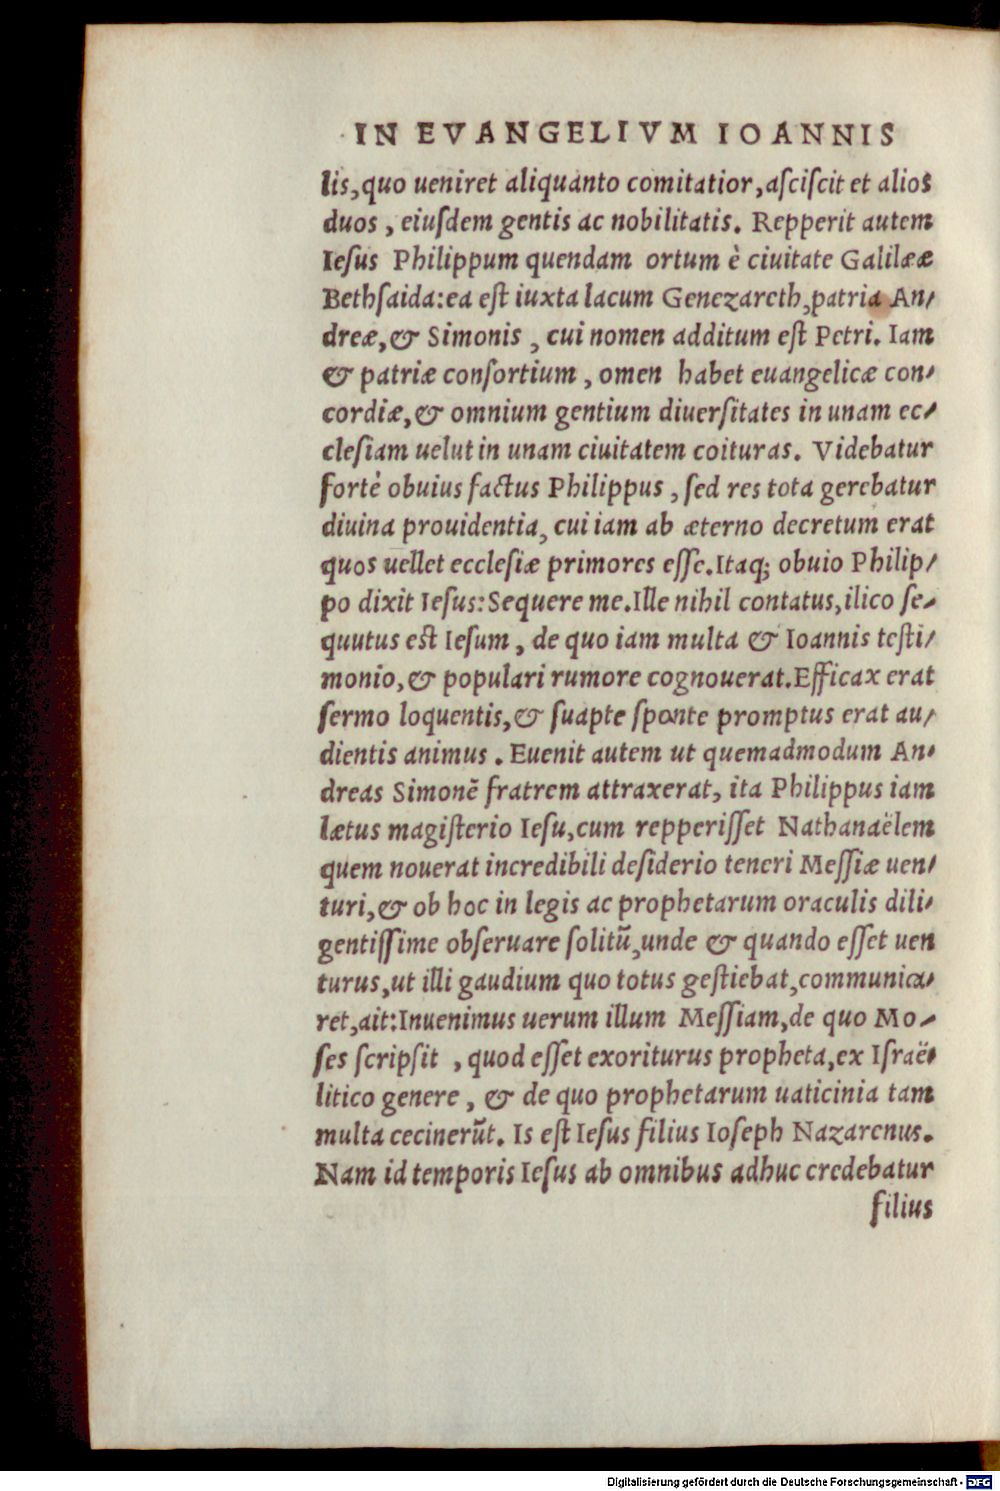 IN EVANGELIVM IOANNIS
lis, quo ueniret aliquanto comitatior, aſciſcit et alios
duos, eiuſdem gentis ac nobilitatis. Repperit autem
Ieſus Philippum quendam ortum è ciuitate Galilææ
Bethſaida: ea eſt iuxta lacum Genezareth, patria An/
dreæ, & Simonis, cui nomen additum eſt Petri. Iam
& patriæ conſortium, omen habet euangelicæ con/
cordiæ, & omnium gentium diuerſitates in unam ec/
cleſiam uelut in unam ciuitatem coituras. Videbatur
fortè obuius factus Philippus, ſed res tota gerebatur
diuina prouidentia, cui iam ab æterno decretum erat
quos uellet eccleſiæ primores eſſe. Itaq; obuio Philip/
po dixit Ieſus: Sequere me. Ille nihil contatus, ilico ſe/
quutus eſt Ieſum, de quo iam multa & Ioannis teſti/
monio, & populari rumore cognouerat. Efficax erat
ſermo loquentis, & ſuapte ſponte promptus erat au/
dientis animus. Euenit autem ut quemadmodum An/
dreas Simonē fratrem attraxerat, ita Philippus iam
lætus magiſterio Ieſu, cum repperiſſet Nathanaëlem
quem nouerat incredibili deſiderio teneri Meſſiæ uen/
turi, & ob hoc in legis ac prophetarum oraculis dili/
gentiſſime obſeruare ſolitū, unde & quando eſſet uen
turus, ut illi gaudium quo totus geſtiebat, communica/
ret, ait: Inuenimus uerum illum Meſſiam, de quo Mo/
ſes ſcripſit, quod eſſet exoriturus propheta, ex Iſraë/
litico genere, & de quo prophetarum uaticinia tam
multa cecinerūt. Is eſt Ieſus filius Ioſeph Nazarenus.
Nam id temporis Ieſus ab omnibus adhuc credebatur
filius
Digitalisierung gefördert durch die Deutsche Forschungsgemeinschaft - DFG